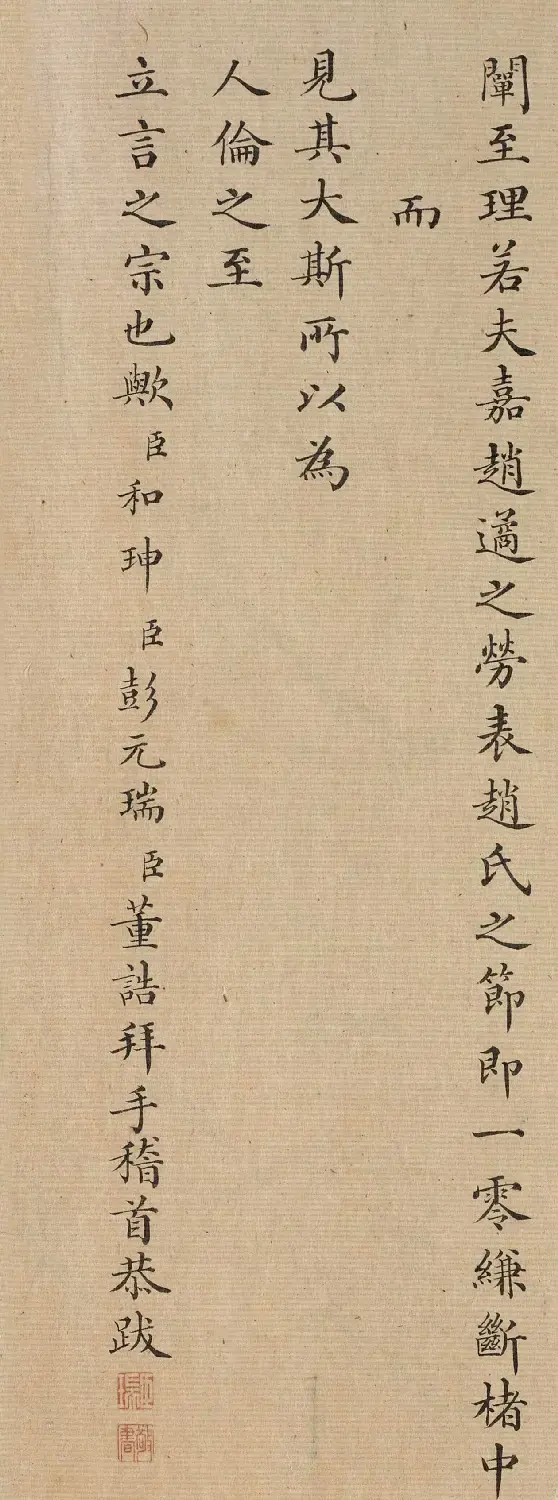 闡至理若夫嘉趙遹之勞表趙氏之節即一零縑斷楮中
而
見其大斯所以為
人倫之至
立言之宗也歟臣和珅臣彭元瑞臣董誥拜手稽首恭跋
敬書